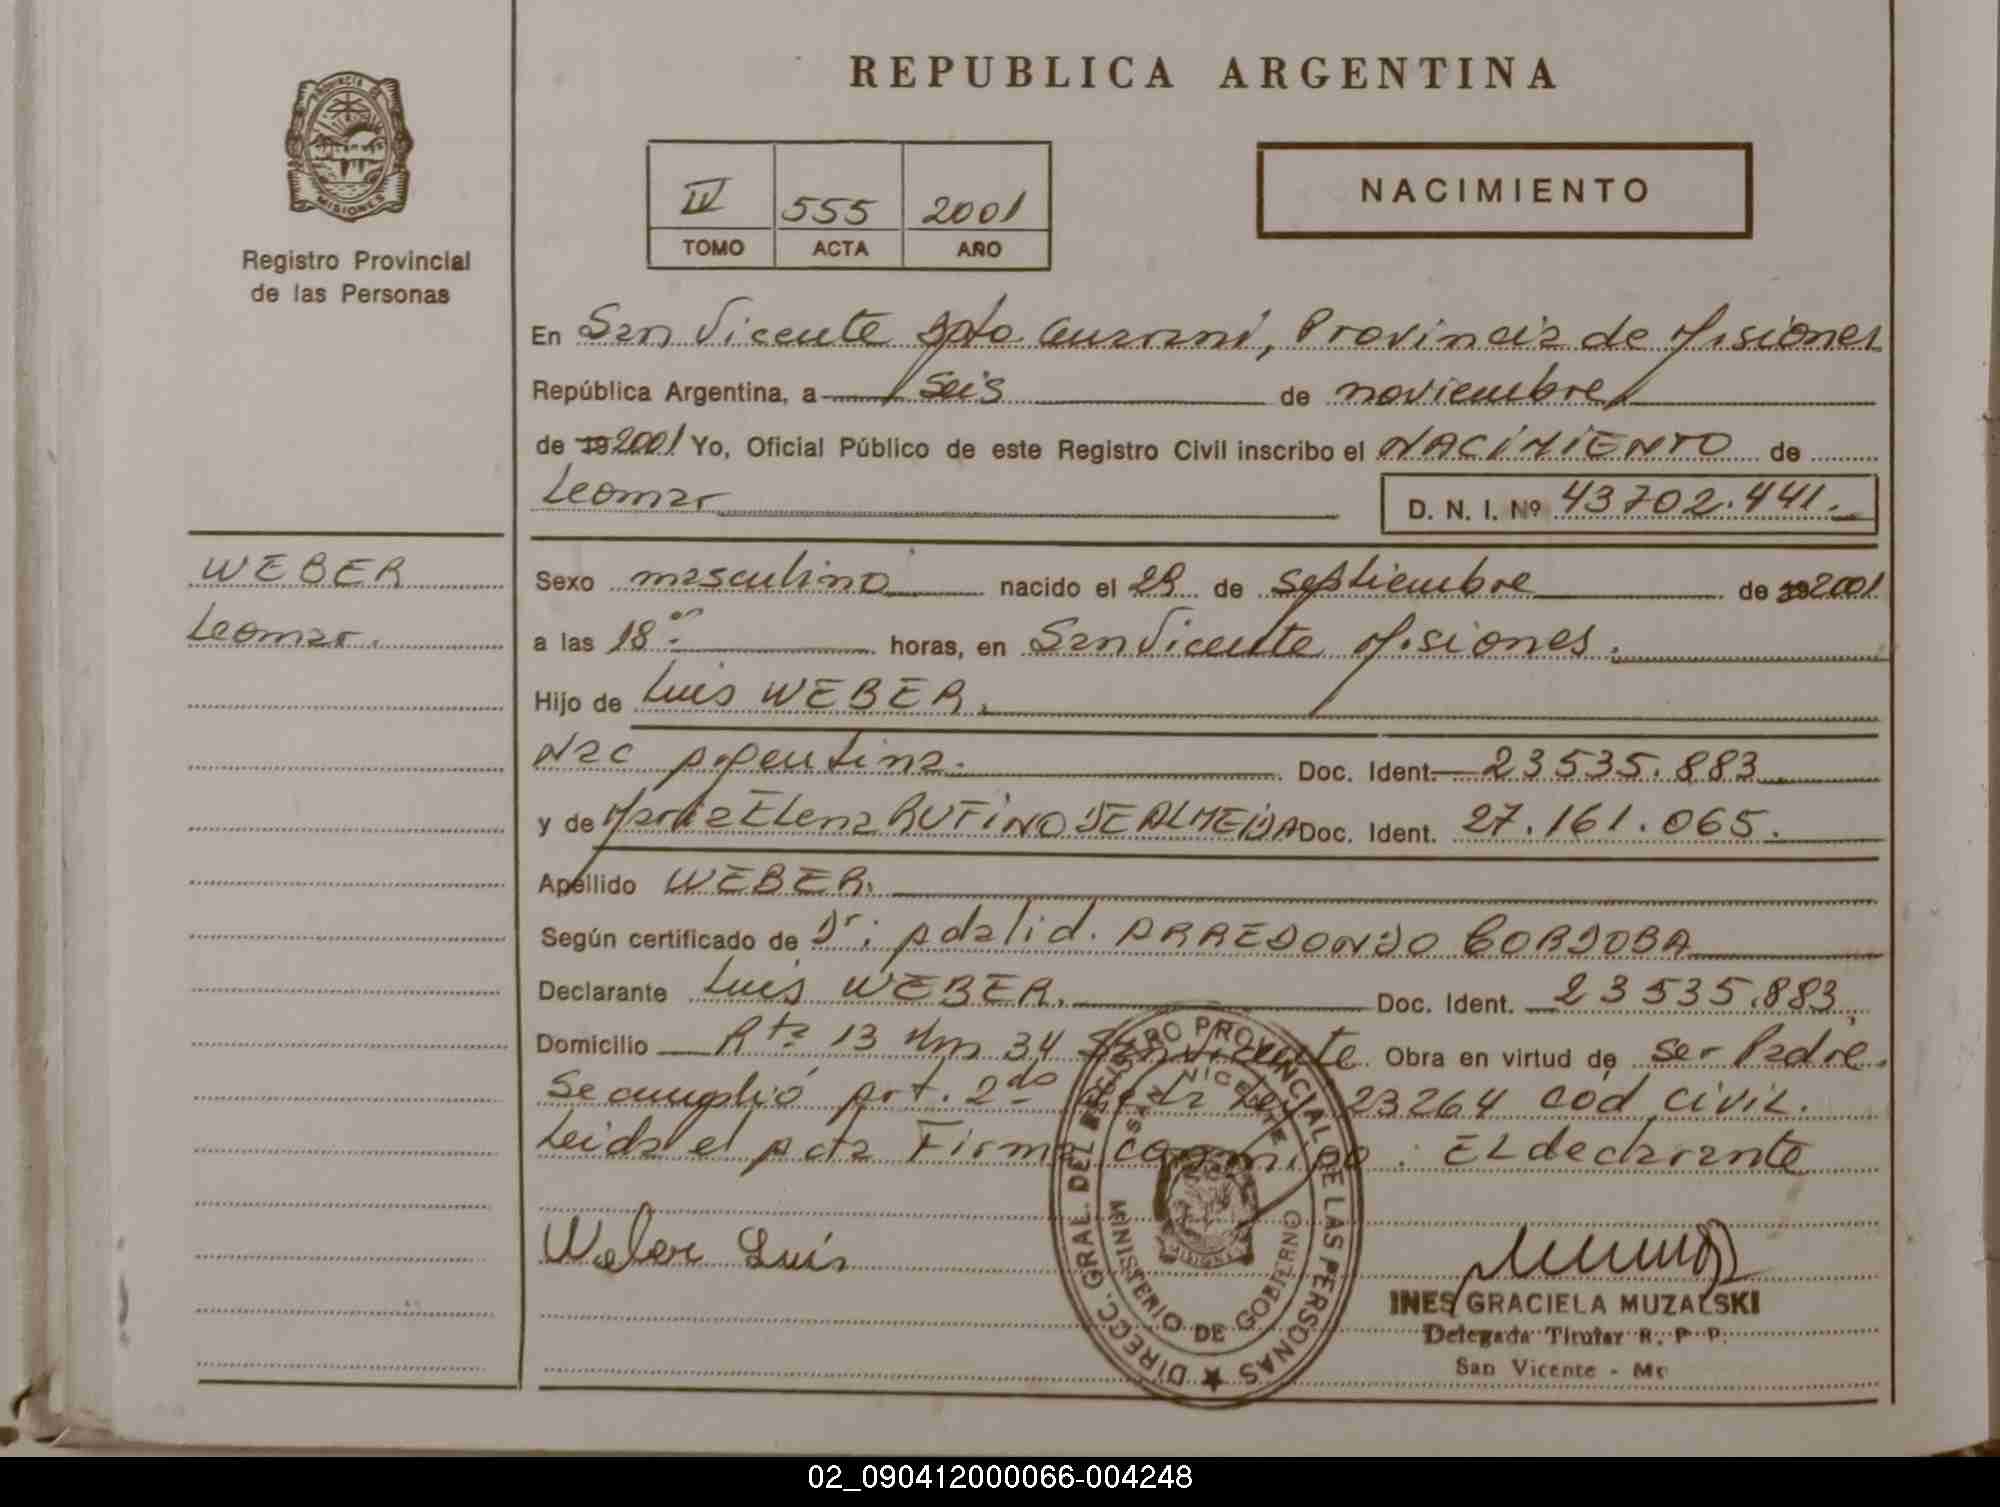 PROVINCIA DE
MISIONES
Registro Provincial
de las Personas
WEBER
Leomar.
REPUBLICA ARGENTINA
IV 555 2001
TOMO ACTA AÑO
NACIMIENTO
En San Vicente Dpto. Guaraní, Provincia de Misiones
República Argentina, a Seis de noviembre
de 19 2001 Yo, Oficial Público de este Registro Civil inscribo el NACIMIENTO de
Leomar D. N. I. Nº 43702.441.
Sexo masculino nacido el 29 de septiembre de 19 2001
a las 18 horas, en San Vicente Misiones.
Hijo de Luis WEBER.
Nac Argentina. Doc. Ident. 23535.883
y de Maria Elena RUFINO DE ALMEIDA Doc. Ident. 27.161.065.
Apellido WEBER.
Según certificado de Dr: Adalid. ARREDONDO CORDOBA
Declarante Luis WEBER. Doc. Ident. 23535.883
Domicilio Rta 13 Km 34 San Vicente Obra en virtud de ser Padre.
Se cumplió Art. 2do de la Ley 23264 cod civil.
Leida el Acta Firma conmigo. El declarante
Weber Luis
DIRECC. GRAL. DEL REGISTRO PROVINCIAL DE LAS PERSONAS
SAN VICENTE
MINISTERIO DE GOBIERNO
MISIONES
INES GRACIELA MUZALSKI
Delegada Titular R. P. P.
San Vicente - Ms
02_090412000066-004248